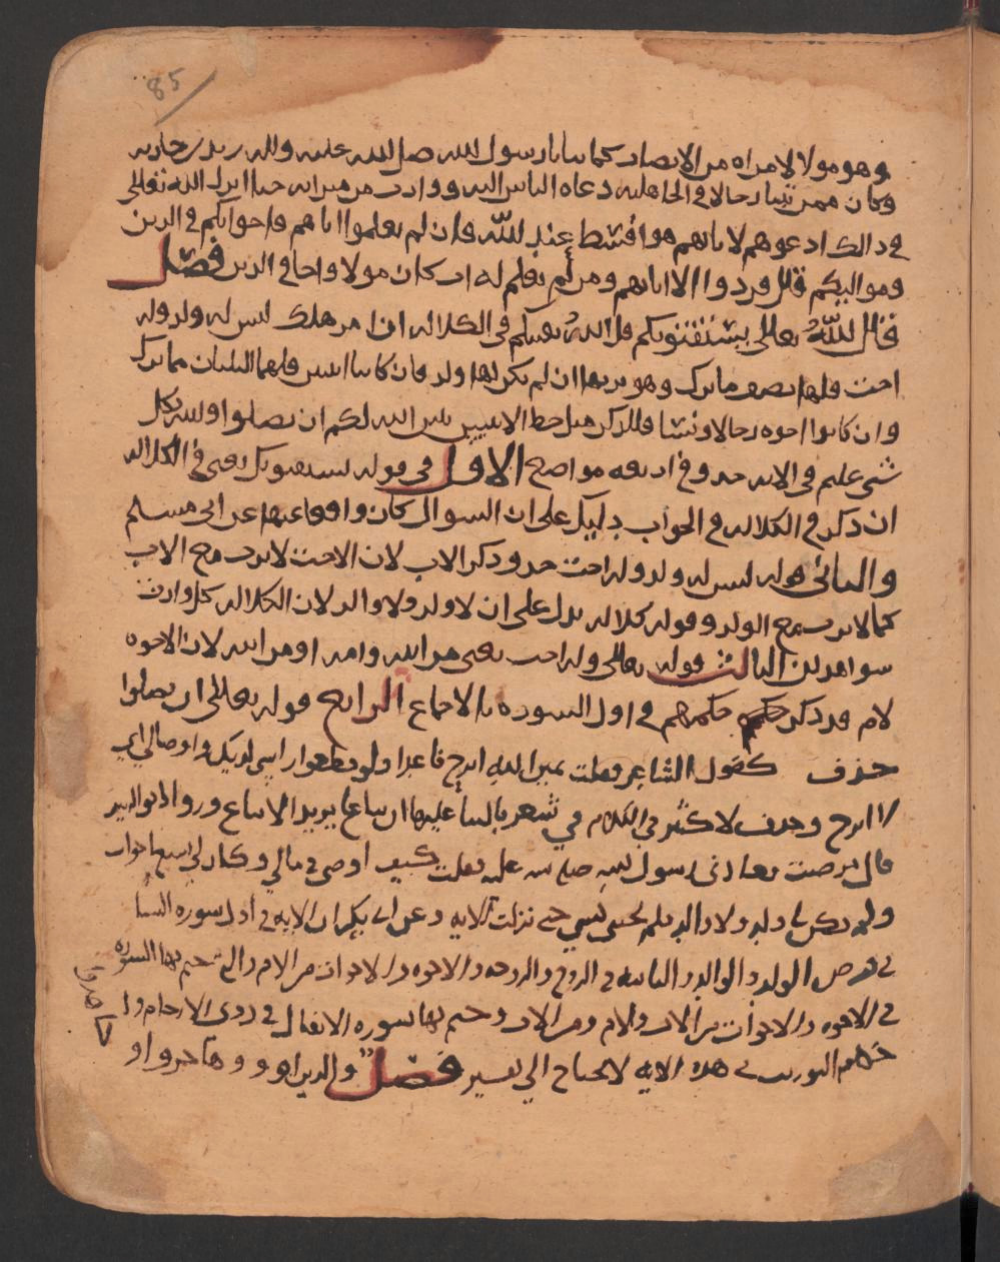 85
وهو مولا لامراه من الانصار كما تبنا رسول الله صلى الله عليه واله زيد بن حارثه
وكان ممن تبنا رجالا في الجاهليه دعاه الناس اليه وورث من ميراثه حتا انزل الله تعالى
في ذالك ادعوهم لابائهم هو اقسط عند لله فان لم تعلموا اباهم فاخوانكم في الدين
ومواليكم قال فردوا الا ابائهم ومن لم يعلم له اب كان مولا واخا في الدين فصل
قال لله تعالى يستفتونكم قل الله يفتيكم في الكلاله ان امر هلك ليس له ولد وله
اخت فلها نصف ما ترك وهو يرثها ان لم يكن لها ولد فان كانتا اثنتين فلهما الثلثان مما ترك
وان كانوا اخوه رجالا ونسا فللذكر مثل حظ الانثيين يبين الله لكم ان تضلوا والله بكل
شي عليم في الايه حذوف في اربعه مواضع الاول في قوله يستفتونك يعني في الكلاله
ان ذكر في الكلاله في الجواب دليل على ان السوال كان واقعا عنها عن ابي مسلم
والثاني قوله ليس له ولد وله اخت حذف ذكر الاب لان الاخت لا ترث مع الاب
كما لا ترث مع الولد وقوله كلاله يدل على ان لا ولد ولا والد لان الكلاله كل وارث
سواهذين الثالث قوله تعالى وله اخت يعني من ابيه وامه او من ابيه لان الاخوه
لام قد ذكر حكم حكمهم في اول السوره بالاجماع الرابع قوله تعالى ان تضلوا
حذف كقول الشاعر فقلت يمين الله ابرح قاعدا ولو قطعوا راسي لديك واوصالي اي
لا ابرح وحذف لا كثير في الكلام في شعر عليها ان تباعا يريد الا تباع وروا ابو الزبير
قال مرضت فعادني رسول لله صلى الله عليه فقلت كيف اوصي في مالي وكان لي سبع اخوات
ولم يكن لي ولد ولا والد فلم يجبني بشي حتى نزلت الايه وعن ابي بكر ان الايه في اول سوره النسا
في فرض الولد والوالد والثانيه في الزوج والزوجه والاخوه والاخوات من الام والتي ختم بها السوره
في الاخوه والاخوات من الاب والام ومن الاب وختم بها سوره الانفال في ذوى الارحام ولـ
حكم التوريث في هذه الايه لا يحتاج الى تفسير فصل والذين اووو وهاجروا و